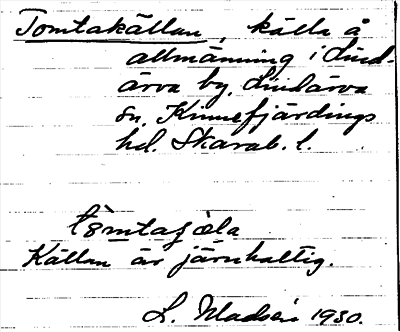 Tomtakällan, källa å
allmänning i Lind-
ärva by, Lindärva
sn, Kinnefjärdings
hd. Skarab. l.
Källan är järnhaltig.
L. 1930.